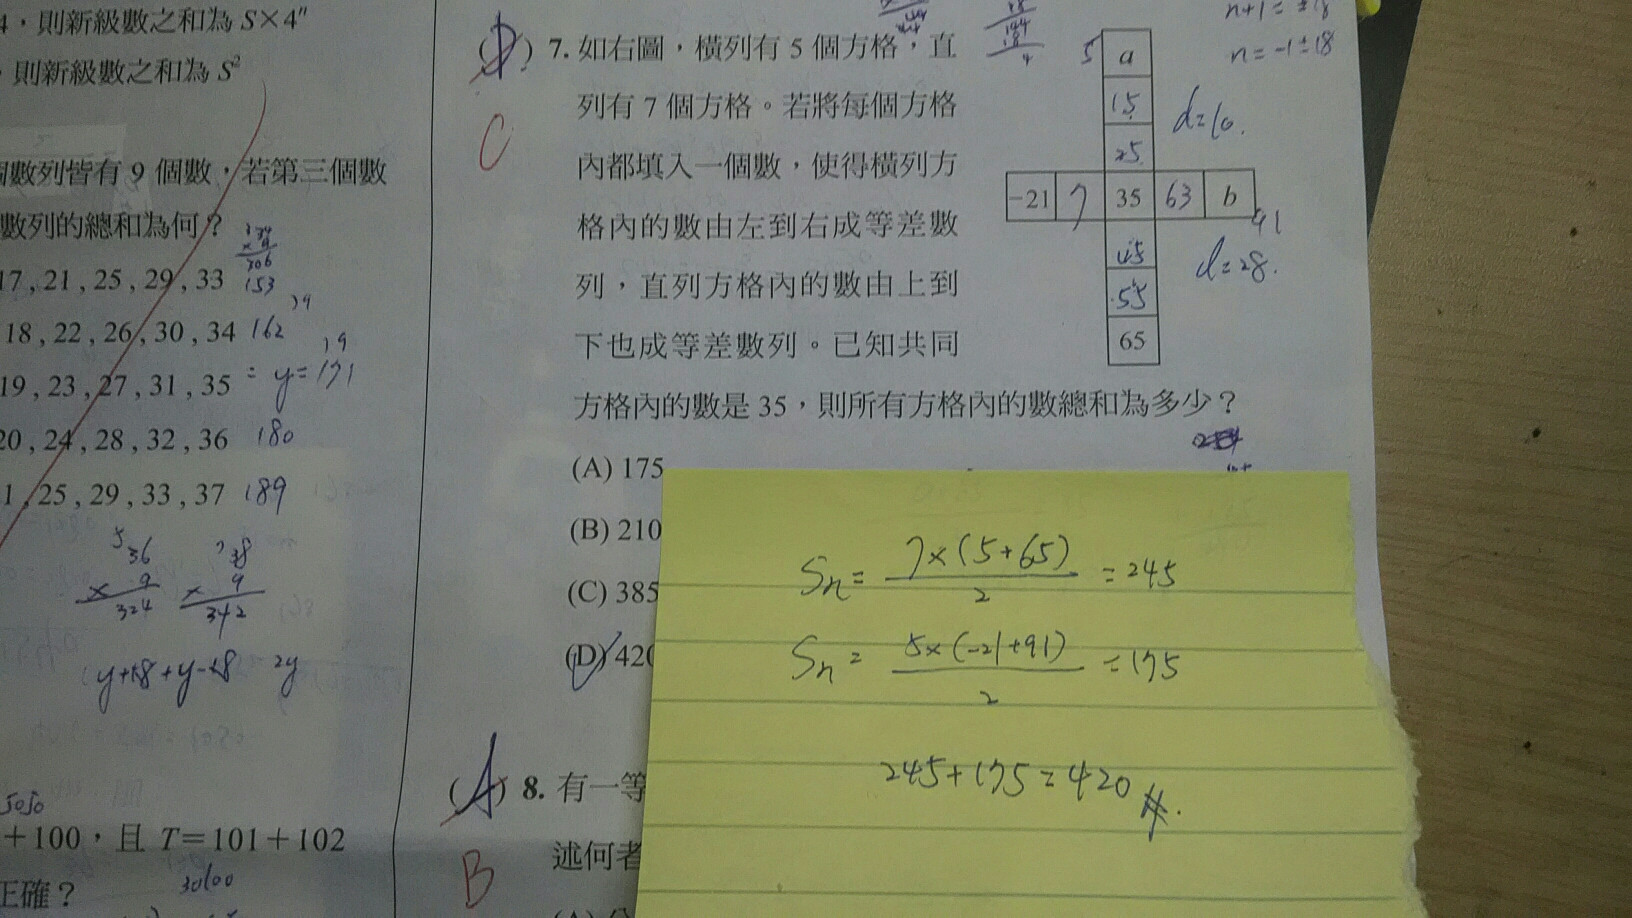 4，則新級數之和為 S×4ⁿ
，則新級數之和為 S²
個數列皆有 9 個數，若第三個數
數列的總和為何？
17 , 21 , 25 , 29 , 33 153
18 , 22 , 26 , 30 , 34 162
19 , 23 , 27 , 31 , 35 = y=171
20 , 24 , 28 , 32 , 36 180
1 , 25 , 29 , 33 , 37 189
36
× 9
324
38
× 9
342
y+18+y-18 2y
+100，且 T=101+102
正確？
n+1=±18
n=-1±18
(D) 7. 如右圖，橫列有 5 個方格，直
C
列有 7 個方格。若將每個方格
內都填入一個數，使得橫列方
格內的數由左到右成等差數
列，直列方格內的數由上到
下也成等差數列。已知共同
方格內的數是 35，則所有方格內的數總和為多少？
5 a
15
25
d=10.
-21 7 35 63 b
91
45
d=28.
55
65
(A) 175
(B) 210
(C) 385
(D) 420
Sn= 7×(5+65) / 2 =245
Sn= 5×(-21+91) / 2 =175
245+175=420 #.
(A) 8. 有一等
B
述何者